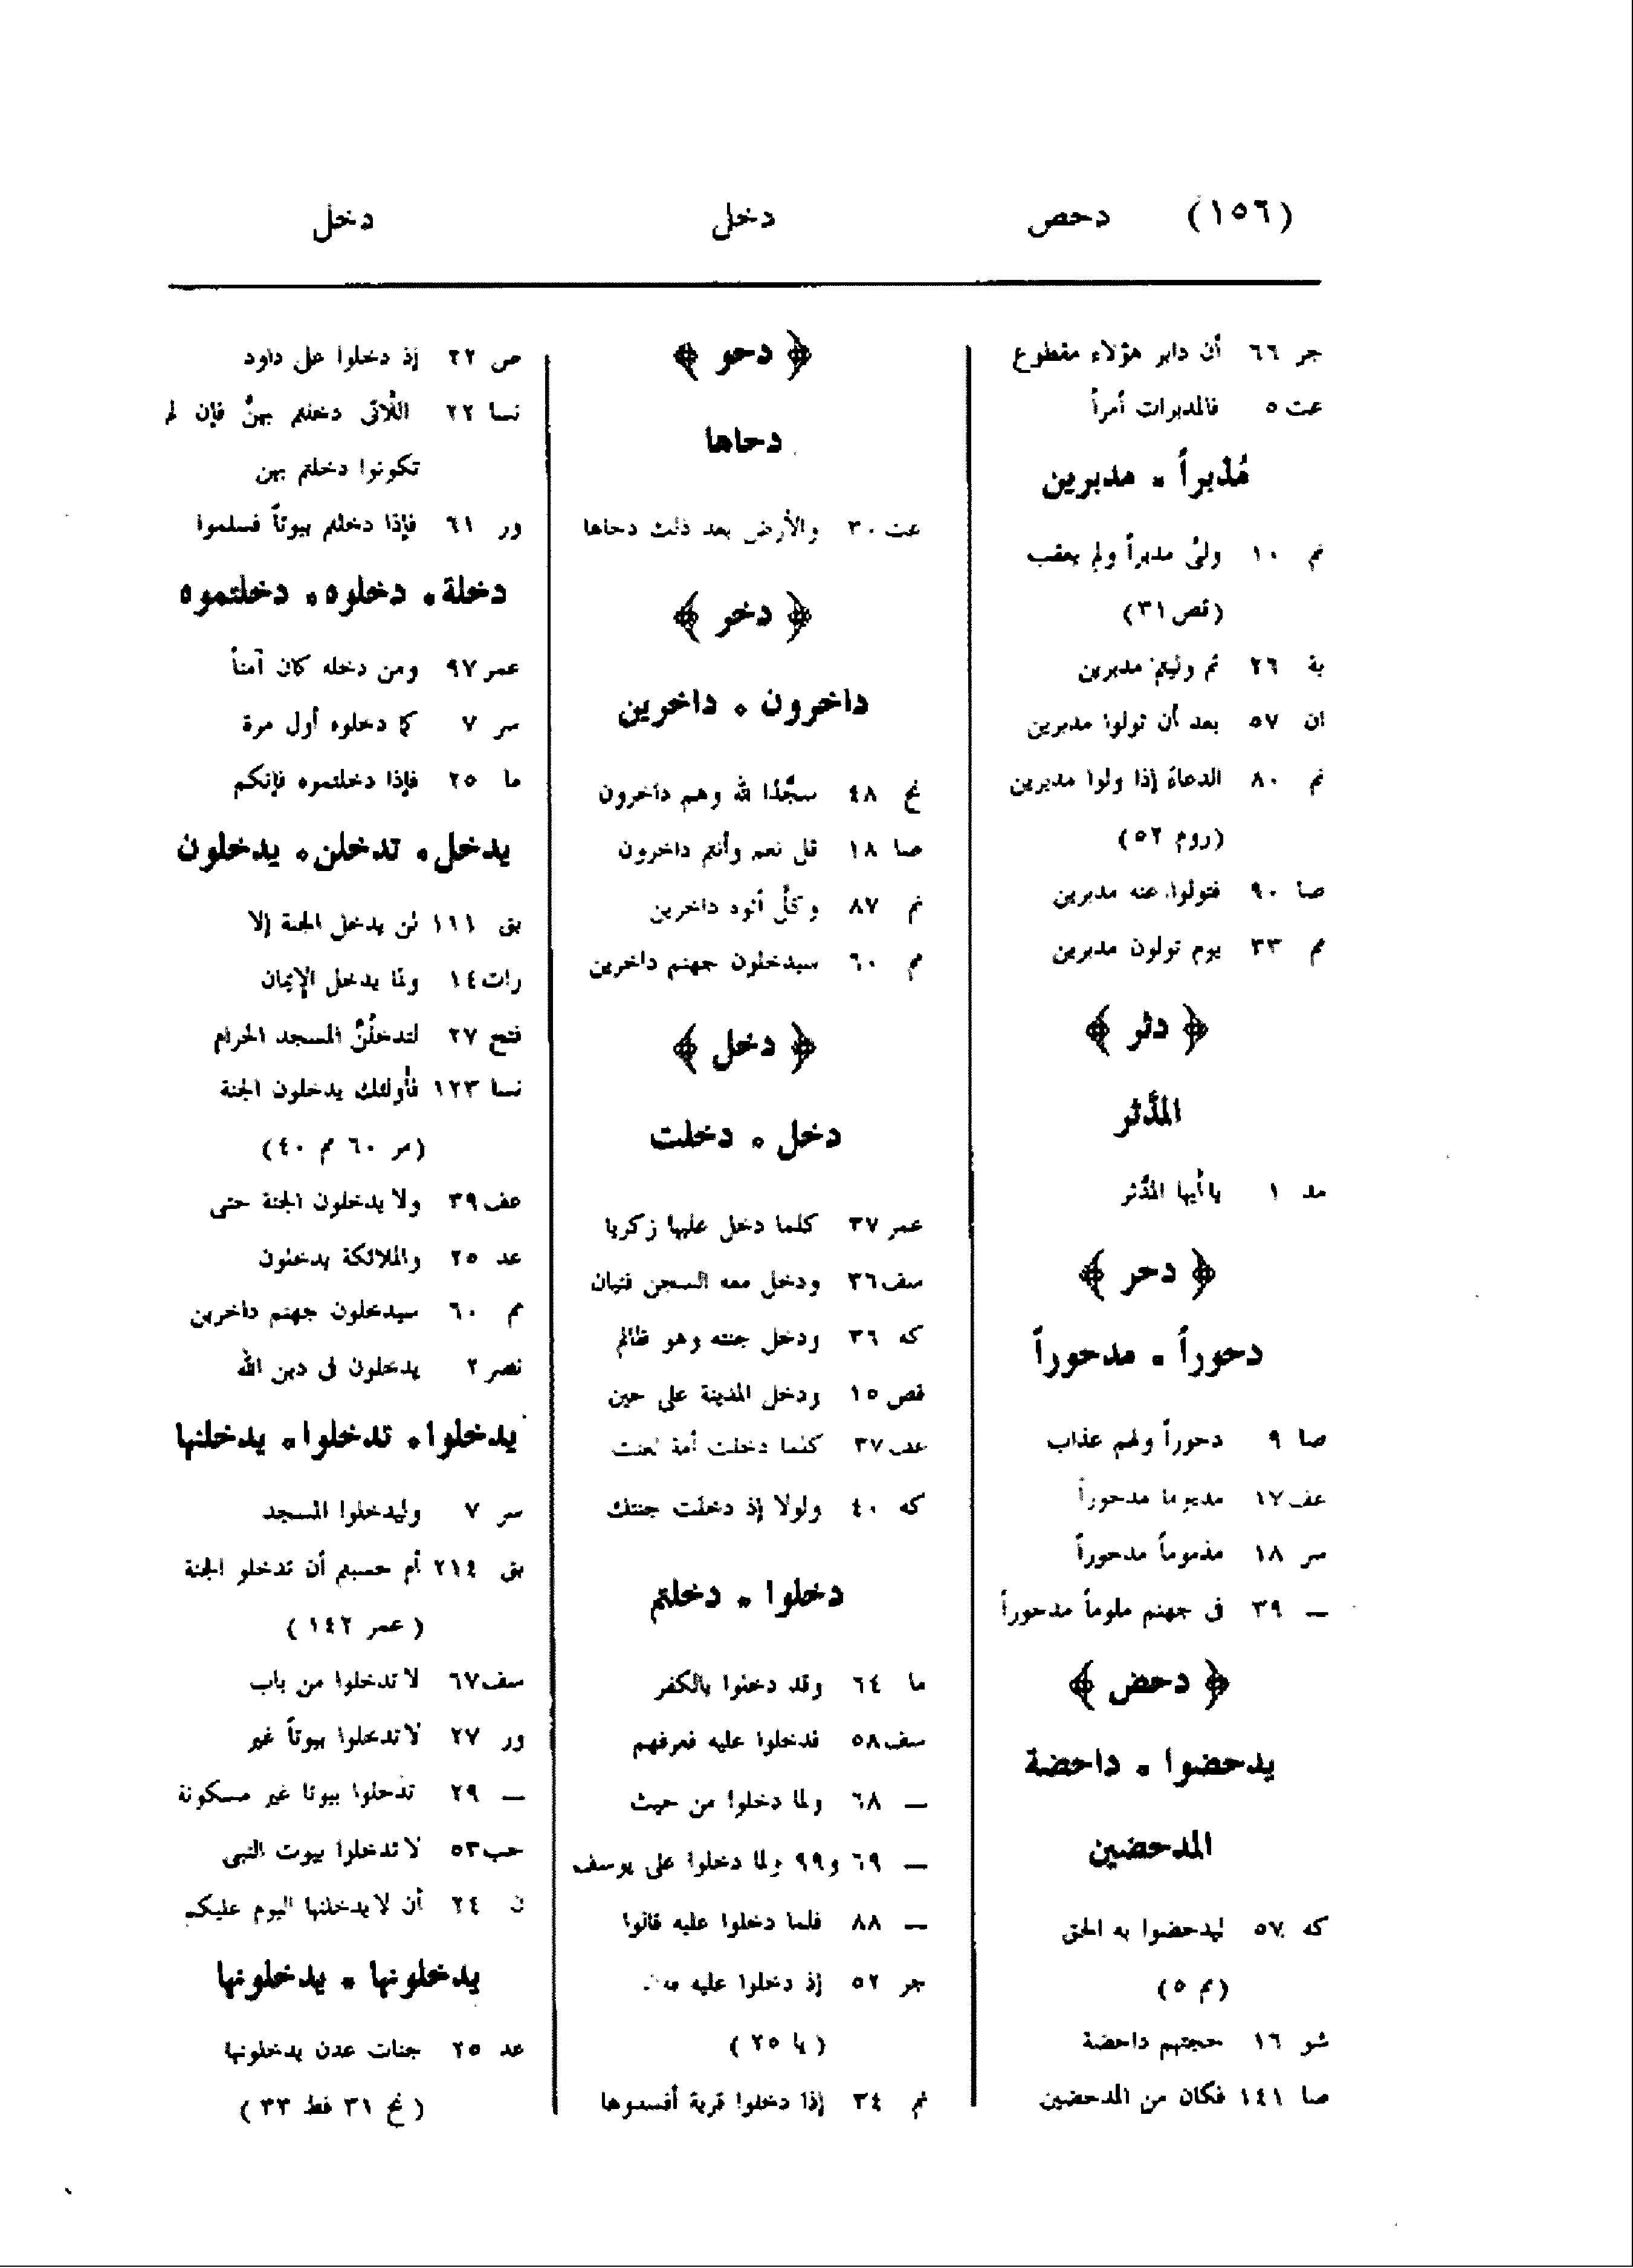 (١٥٦) دحص دخل دخل
جر ٦٦ أن دابر هؤلاء مقطوع
عت ٥ فالمدبرات أمراً
مُدْبراً ٠ مدبرين
نم ١٠ ولى مدبراً ولم يعقب
(قص ٣١)
بة ٢٦ ثم وليتم مدبرين
ان ٥٧ بعد أن تولوا مدبرين
نم ٨٠ الدعاءَ إذا ولوا مدبرين
(روم ٥٢)
صا ٩٠ فتولوا عنه مدبرين
مم ٣٣ يوم تولون مدبرين
﴿ دثر ﴾
المدَّثر
مد ١ ياأيها المدَّثر
﴿ دحر ﴾
دحوراً ٠ مدحوراً
صا ٩ دحوراً ولهم عذاب
عف ١٧ مدحوراً
سر ١٨ مذموماً مدحوراً
ــ ٣٩ فى جهنم ملوماً مدحوراً
﴿ دحض ﴾
يدحضوا ٠ داحضة
المدحضين
كه ٥٧ ليدحضوا به الحق
(مم ٥)
شو ١٦ حجتهم داحضة
صا ١٤١ فكان من المدحضين
﴿ دحو ﴾
دحاها
عت ٣٠ والأرض بعد ذلك دحاها
﴿ دخر ﴾
داخرون ٠ داخرين
نح ٤٨ سجَّدًا لله وهم داخرون
صا ١٨ قل نعم وأنتم داخرون
نم ٨٧ وكلٌ أتوه داخرين
مم ٦٠ سيدخلون جهنم داخرين
﴿ دخل ﴾
دخل ٠ دخلت
عمر ٣٧ كلما دخل عليها زكريا
سف ٣٦ ودخل معه السجن فتيان
كه ٣٦ ودخل جنته وهو ظالم
قص ١٥ ودخل المدينة على حين
عف ٣٧ كلما دخلت أمة لعنت
كه ٤٠ ولولا إذ دخلت جنتك
دخلوا ٠ دخلتم
ما ٦٤ وقد دخلوا بالكفر
سف ٥٨ فدخلوا عليه فعرفهم
ــ ٦٨ ولما دخلوا من حيث
ــ ٦٩ و٩٩ ولما دخلوا على يوسف
ــ ٨٨ فلما دخلوا عليه قالوا
جر ٥٢ إذ دخلوا عليه
( يا ٢٥ )
نم ٣٤ إذا دخلوا قرية أفسدوها
ص ٢٢ إذ دخلوا على داود
نسا ٢٢ اللَّاتى دخلتم بهنَّ فإن لم
تكونوا دخلتم بهن
ور ٦١ فإذا دخلتم بيوتاً فسلموا
دخلة ٠ دخلوه ٠ دخلتموه
عمر ٩٧ ومن دخله كان آمناً
سر ٧ كما دخلوه أول مرة
ما ٢٥ فإذا دخلتموه فإنكم
يدخل ٠ تدخلن ٠ يدخلون
بق ١١١ لن يدخل الجنة إلا
رات ١٤ ولما يدخل الإيمان
فتح ٢٧ لتدخلُنَّ المسجد الحرام
نسا ١٢٣ فأولئك يدخلون الجنة
(مر ٦٠ مم ٤٠)
عف ٣٩ ولا يدخلون الجنة حتى
عد ٢٥ والملائكة يدخلون
مم ٦٠ سيدخلون جهنم داخرين
نصر ٢ يدخلون فى دين الله
يدخلوا ٠ تدخلوا ٠ يدخلنها
سر ٧ وليدخلوا المسجد
بق ٢١٤ أم حسبتم أن تدخلو الجنة
( عمر ١٤٢ )
سف ٦٧ لا تدخلوا من باب
ور ٢٧ لا تدخلوا بيوتاً غير
ــ ٢٩ تدخلوا بيوتا غير مسكونة
حب ٥٣ لا تدخلوا بيوت النبى
ن ٢٤ أن لا يدخلنها اليوم عليكم
يدخلونها ٠ يدخلونها
عد ٢٥ جنات عدن يدخلونها
( نح ٣١ فط ٣٣ )